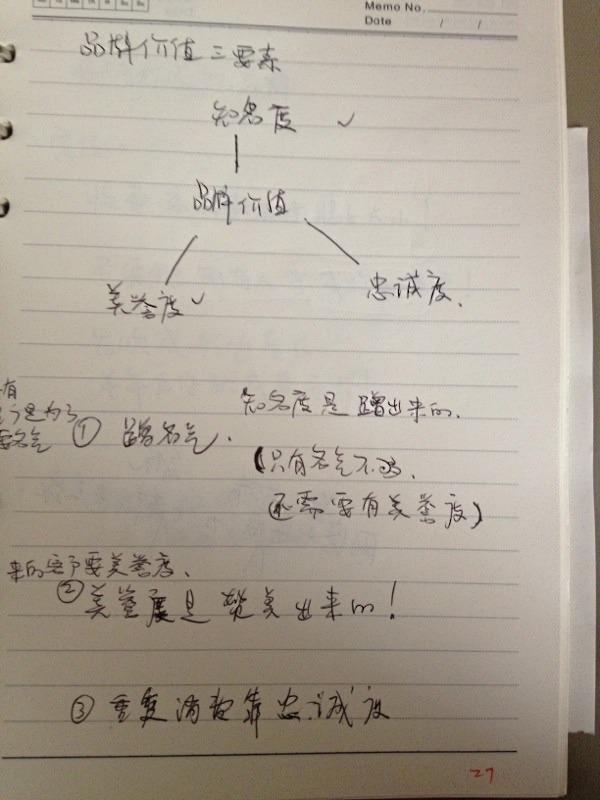 Memo No.
Date / /
品牌价值三要素
知名度 ✓
品牌价值
美誉度 ✓
忠诚度.
有
是为了
要名气
① 蹭名气.
知名度是蹭出来的.
(只有名气不够.
还需要有美誉度)
来的客户要美誉度.
②美誉度是赞美出来的!
③ 重复消费靠忠诚度
27